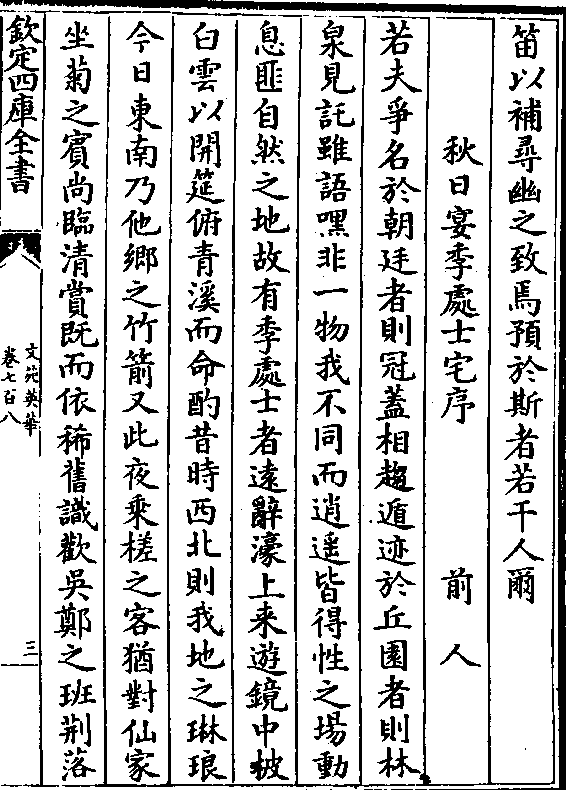 笛以補尋幽之致焉預於斯者若干人爾
秋日宴季處士宅序　　前人
若夫爭名於朝廷者則冠蓋相趨遁迹於丘園者則林
泉見託雖語嘿非一物我不同而逍遥皆得性之塲動
息匪自然之地故有季處士者遠辭濠上来遊鏡中披
白雲以開筵俯青溪而命酌昔時西北則我地之琳琅
今日東南乃他鄉之竹箭又此夜乗槎之客猶對仙家
坐菊之賓尚臨清賞既而依稀舊識歡吳鄭之班荆落
欽定四庫全書
文苑英華
卷七百八
三